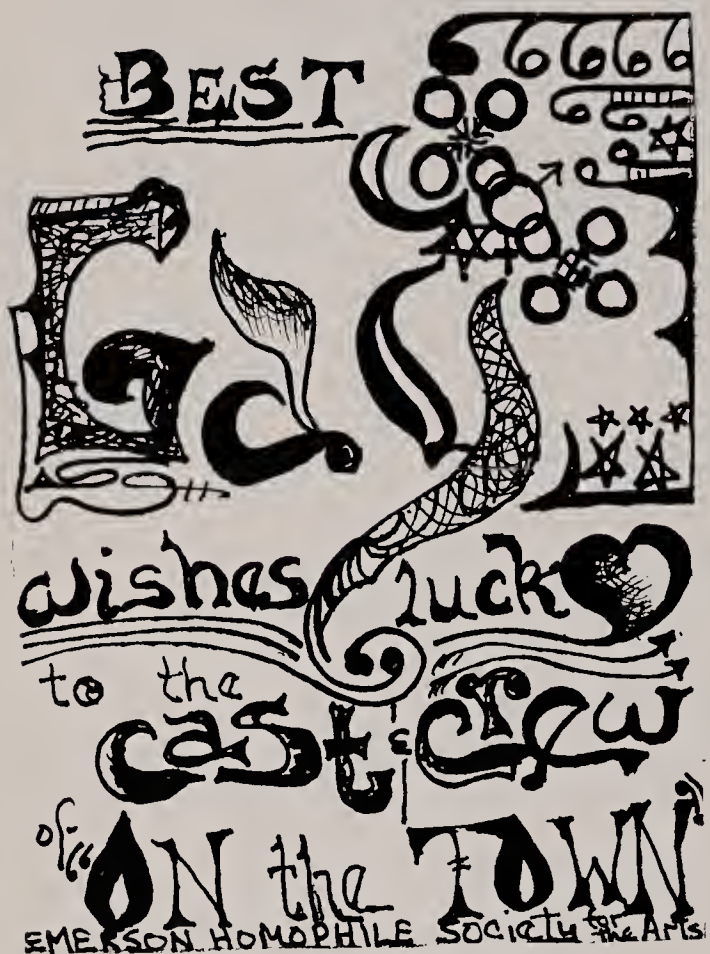 BEST
Gay
wishes luck
to the
cast & crew
of "ON the TOWN"
EMERSON HOMOPHILE SOCIETY for the Arts